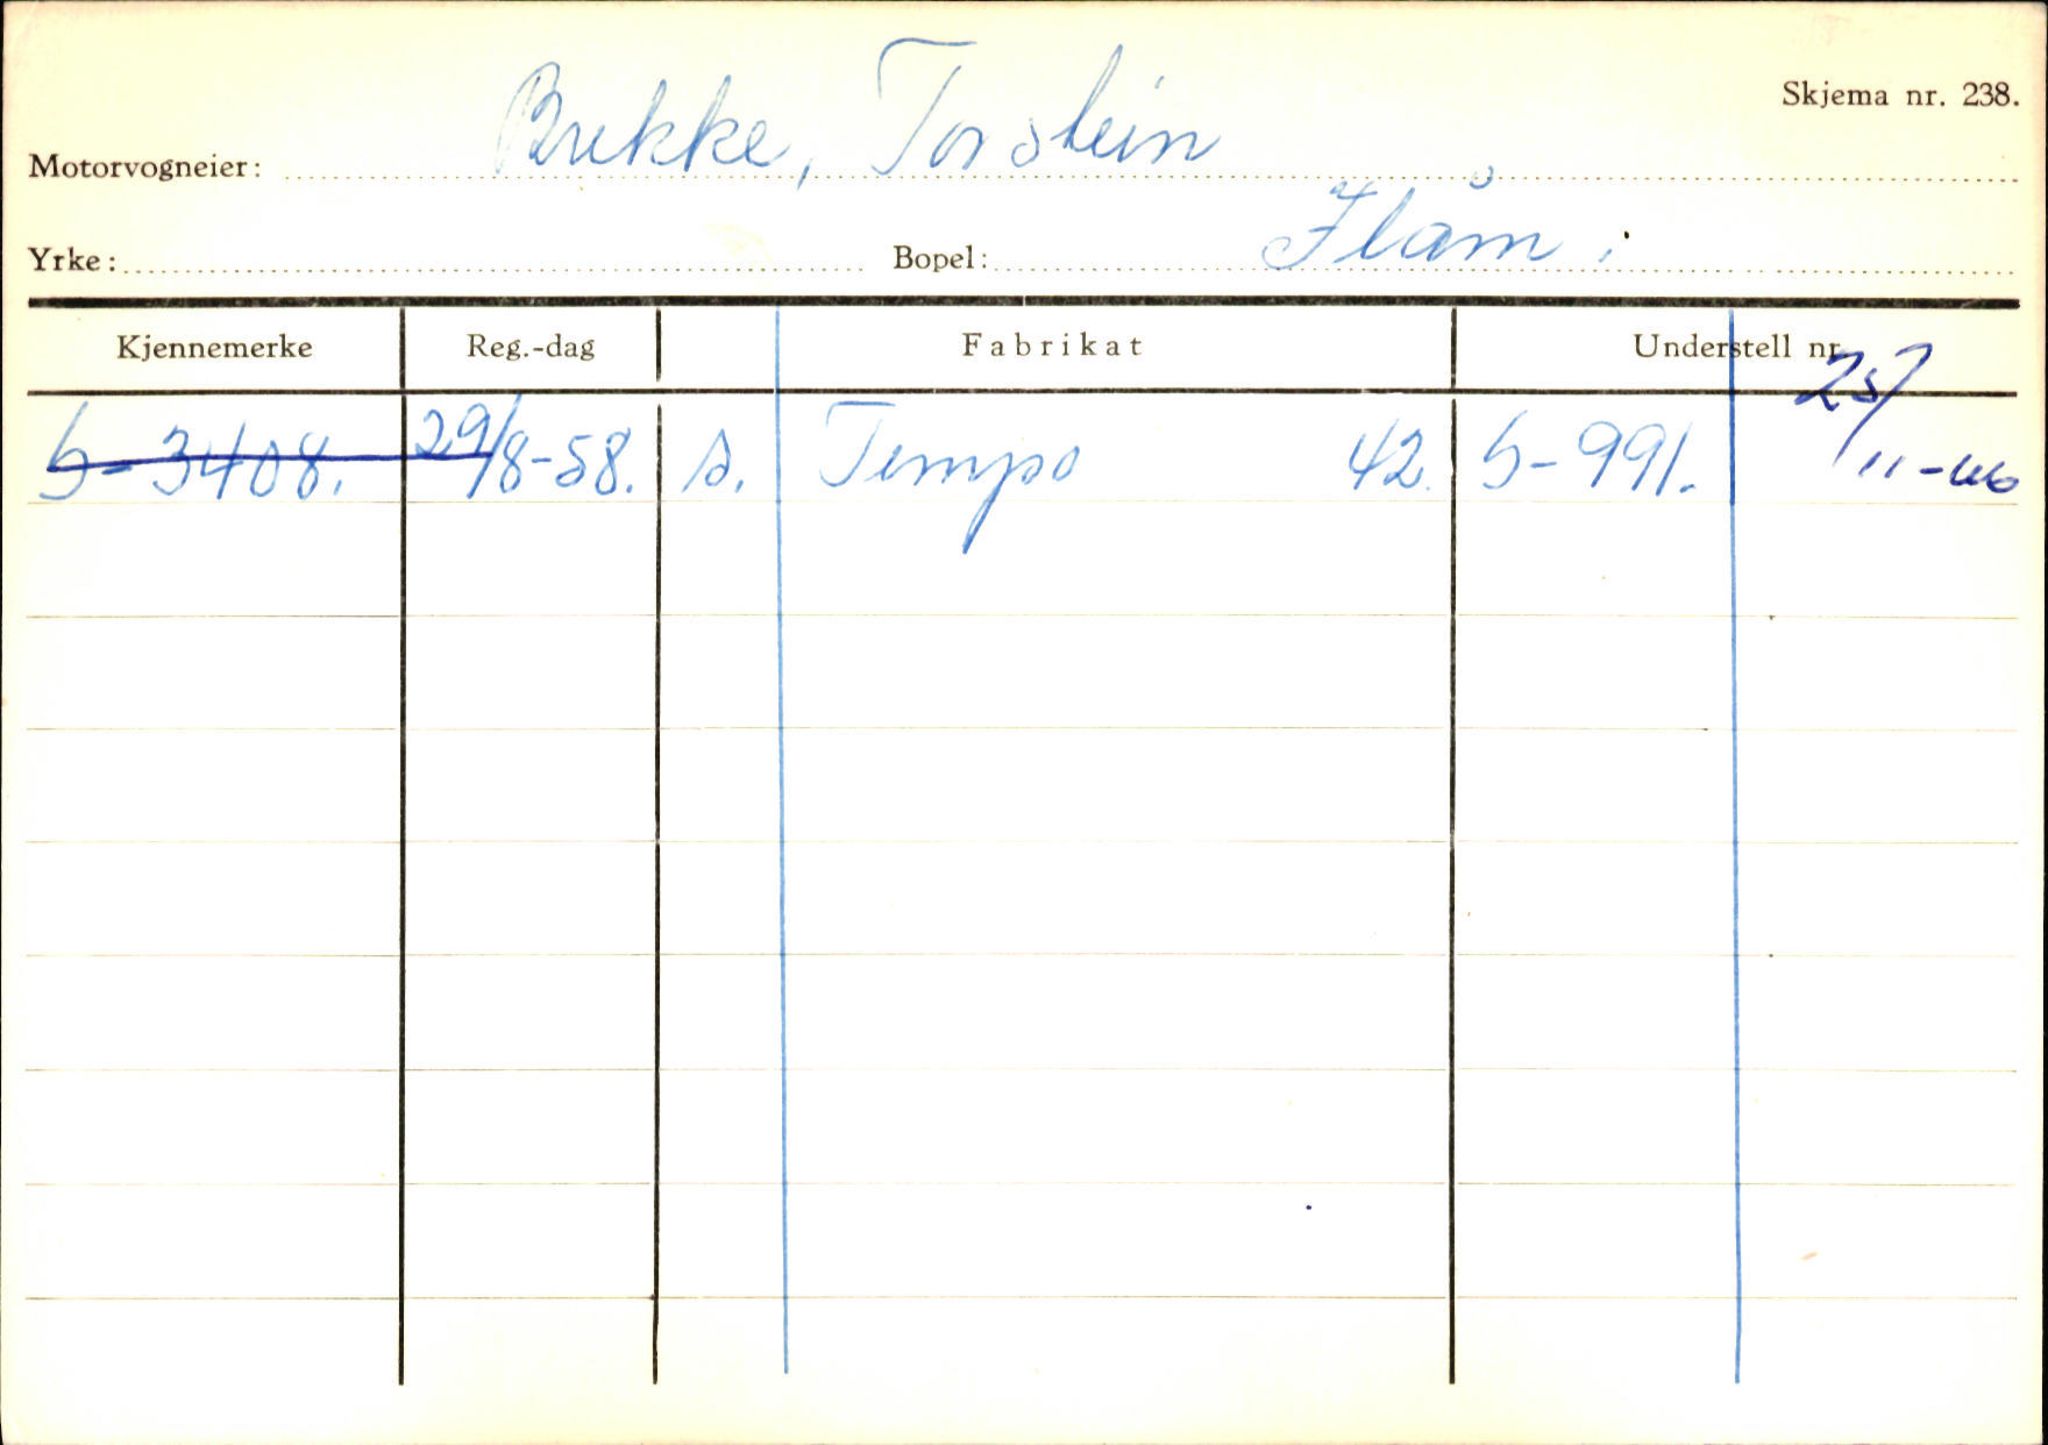 Skjema nr. 238.
Motorvogneier: Brekke, Torstein
Yrke: Bopel: Flåm.
Kjennemerke Reg.-dag Fabrikat Understell nr.
S-3408. 29/8-58. s. Tempo 42. S-991. 25/11-